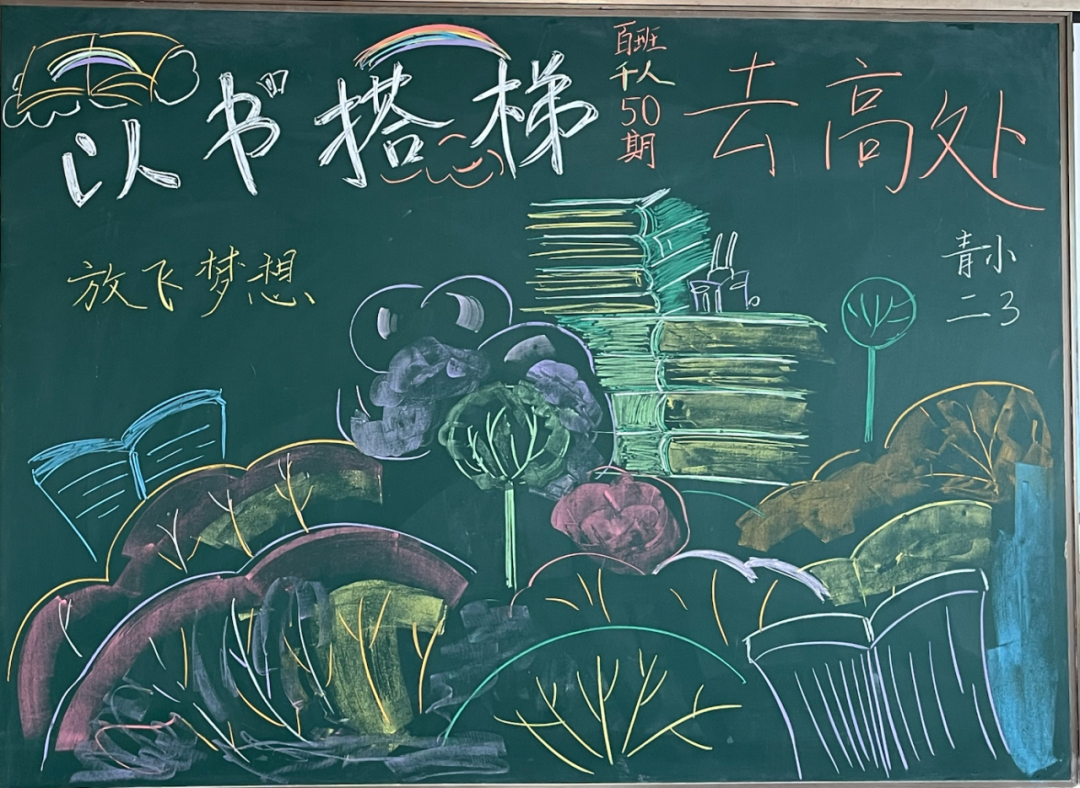 以书搭梯
百班
千人
50
期
去高处
放飞梦想
青小
二3